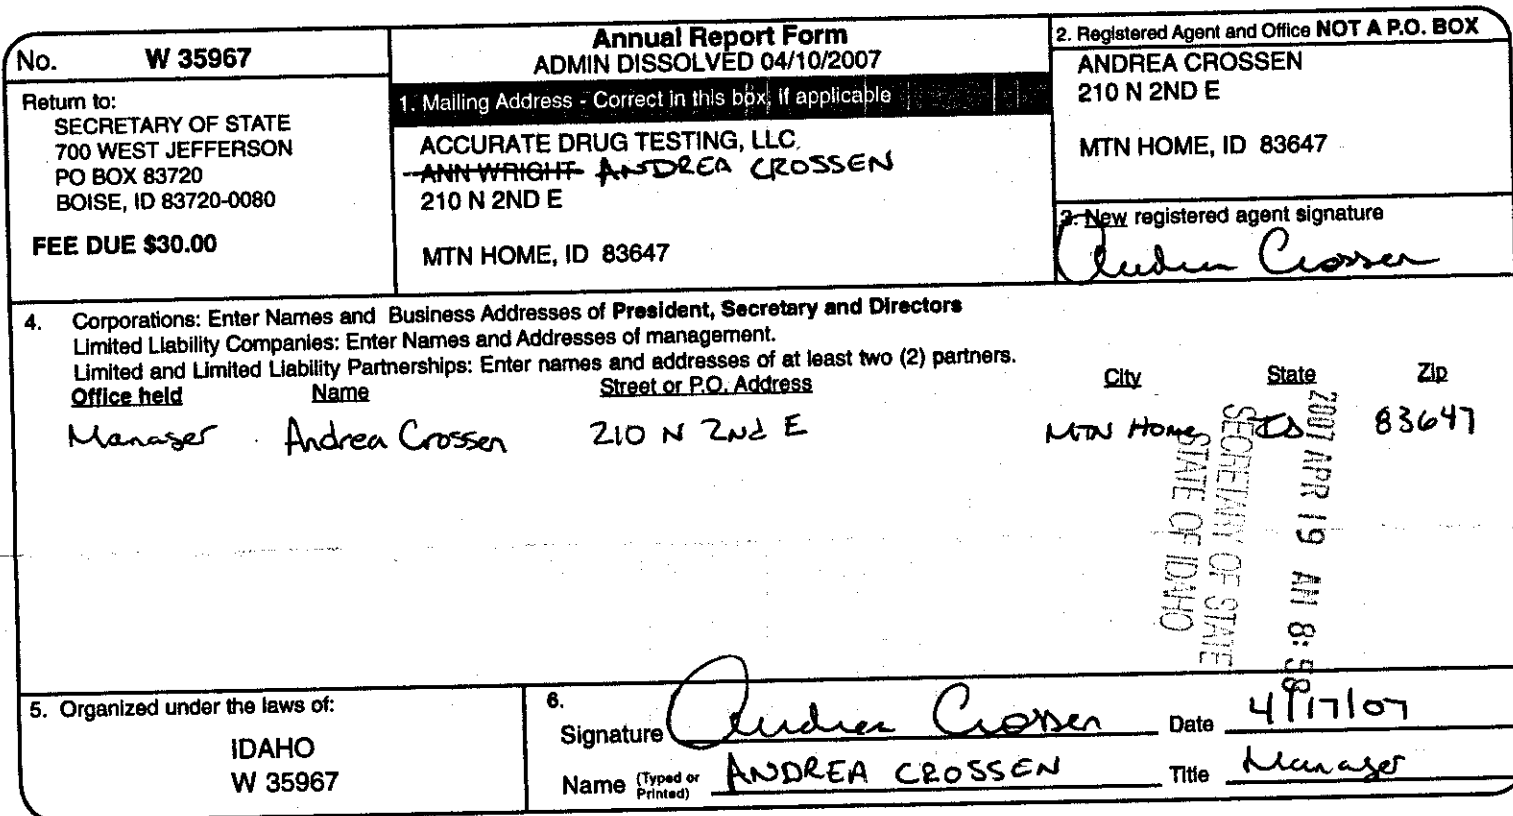 No. W 35967
Return to:
SECRETARY OF STATE
700 WEST JEFFERSON
PO BOX 83720
BOISE, ID 83720-0080
FEE DUE $30.00
Annual Report Form
ADMIN DISSOLVED 04/10/2007
1. Mailing Address - Correct in this box, if applicable
ACCURATE DRUG TESTING, LLC.
ANN WRIGHT ANDREA CROSSEN
210 N 2ND E
MTN HOME, ID 83647
2. Registered Agent and Office NOT A P.O. BOX
ANDREA CROSSEN
210 N 2ND E
MTN HOME, ID 83647
3. New registered agent signature
Andrea Crossen
4. Corporations: Enter Names and Business Addresses of President, Secretary and Directors
Limited Liability Companies: Enter Names and Addresses of management.
Limited and Limited Liability Partnerships: Enter names and addresses of at least two (2) partners.
Office held Name Street or P.O. Address City State Zip
Manager Andrea Crossen 210 N 2nd E MTN Home ID 83647
2007 APR 19 AM 8:58
SECRETARY OF STATE
STATE OF IDAHO
5. Organized under the laws of:
IDAHO
W 35967
6.
Signature Andrea Crossen Date 4/17/07
Name (Typed or Printed) ANDREA CROSSEN Title Manager